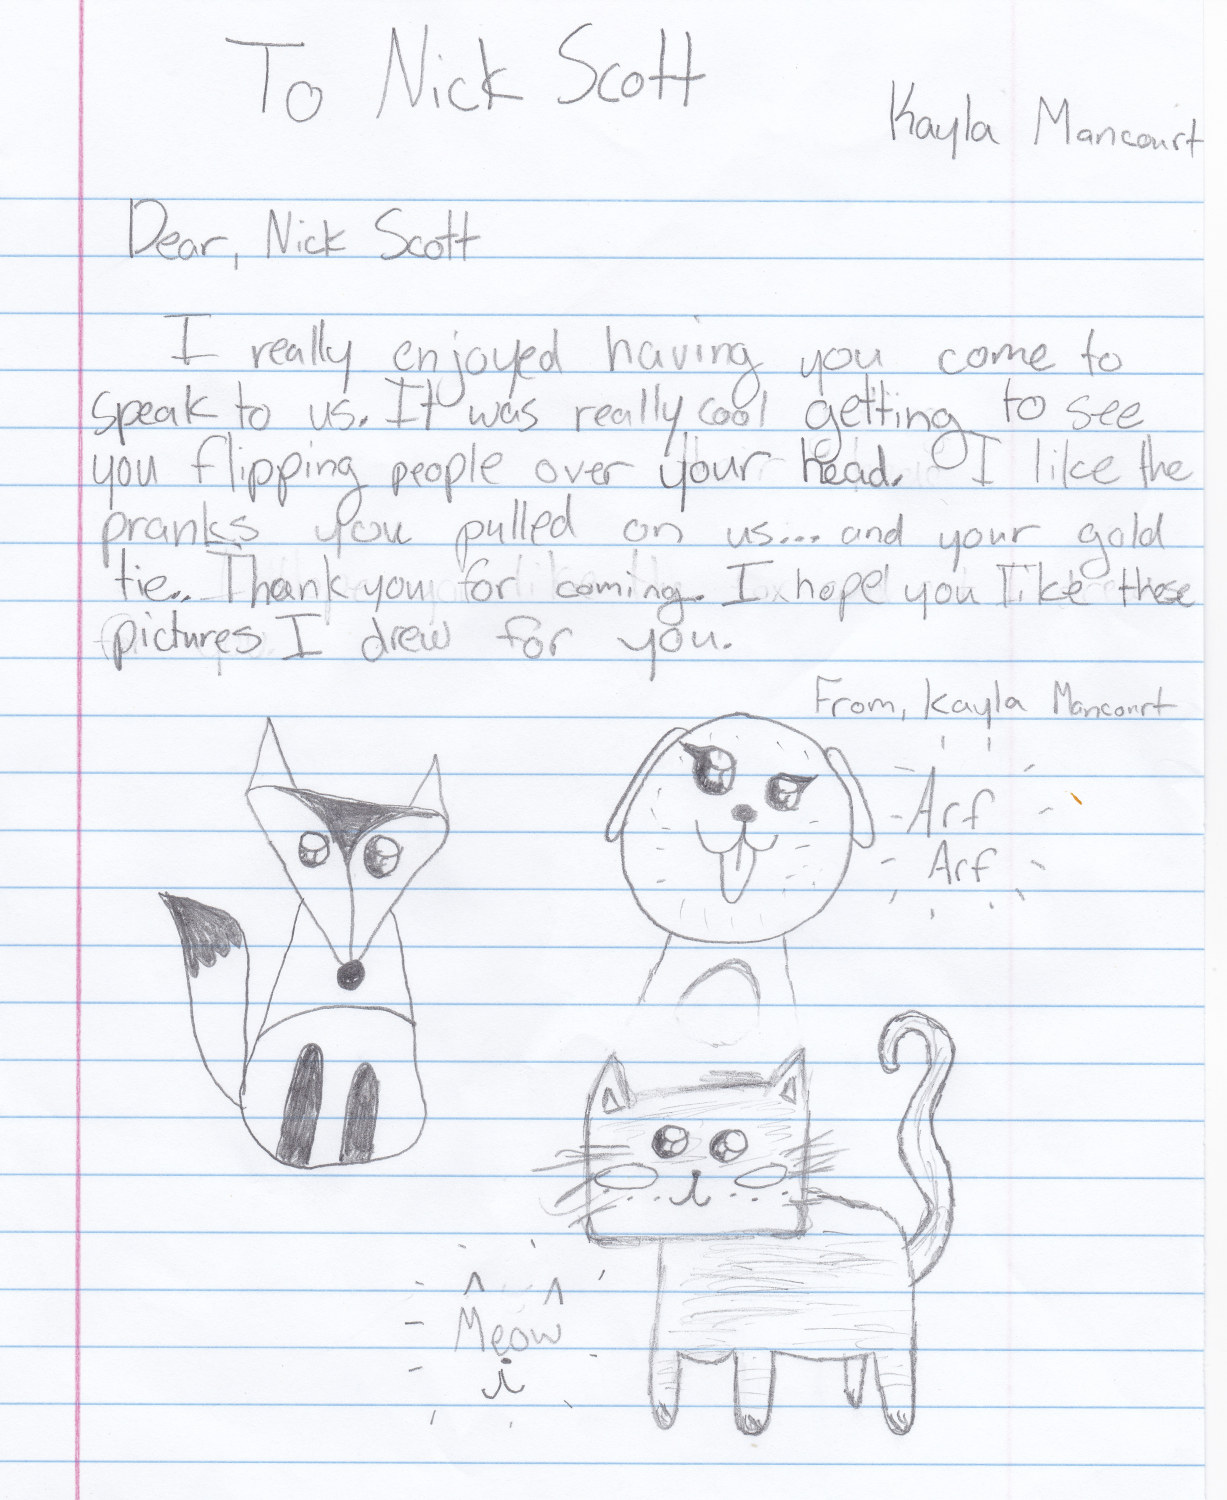 To Nick Scott
Kayla Mancourt
Dear, Nick Scott
I really enjoyed having you come to
speak to us. It was really cool getting to see
you flipping people over your head. I like the
pranks you pulled on us... and your gold
tie.. Thank you for coming. I hope you like these
pictures I drew for you.
From, Kayla Mancourt
Arf
Arf
Meow